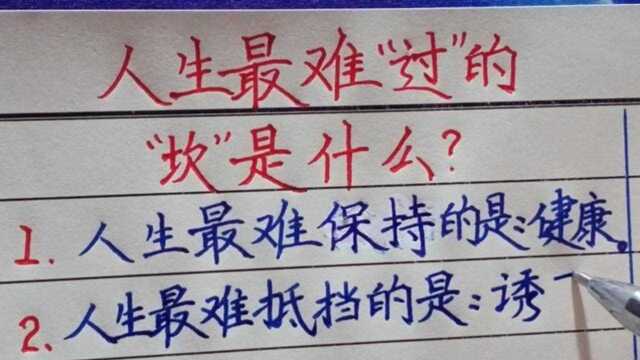 人生最难“过”的
“坎”是什么?
1. 人生最难保持的是:健康。
2. 人生最难抵挡的是:诱